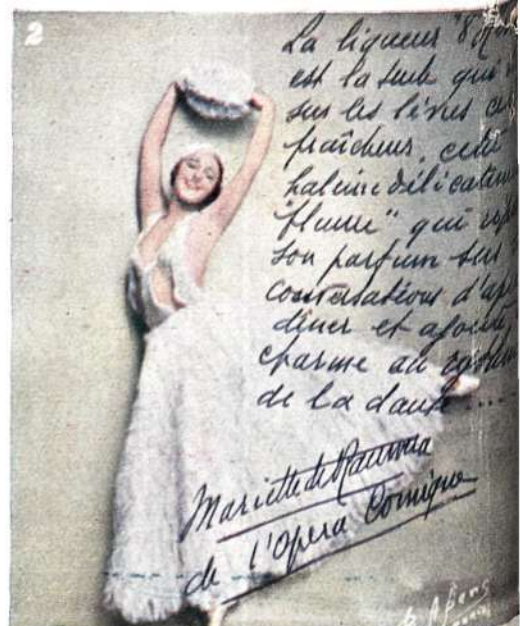 2
La liqueur "8
est la seule qui
sur les lèvres
fraîcheur, cette
haleine délicatem
"fleurie" qui
son parfum sur
conversations d'ap
dîner et ajoute
charme au
de la danse ....
Mariette de Rauwera
de l'Opera Comique